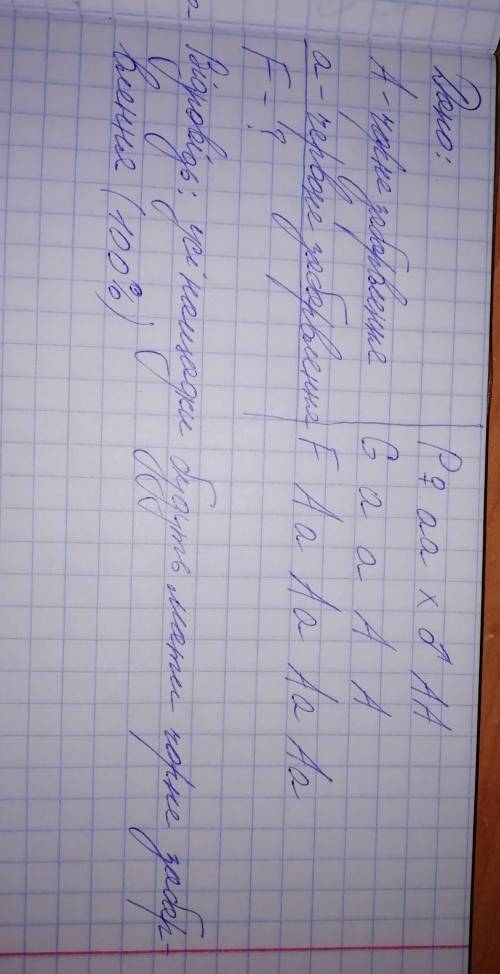 Дано:
А - чорне забарвлення
а - червоне забарвлення
F - ?
P ♀ аа × ♂ АА
G а а А А
F Аа Аа Аа Аа
Відповідь: усі нащадки будуть мати чорне забар-
влення (100%);